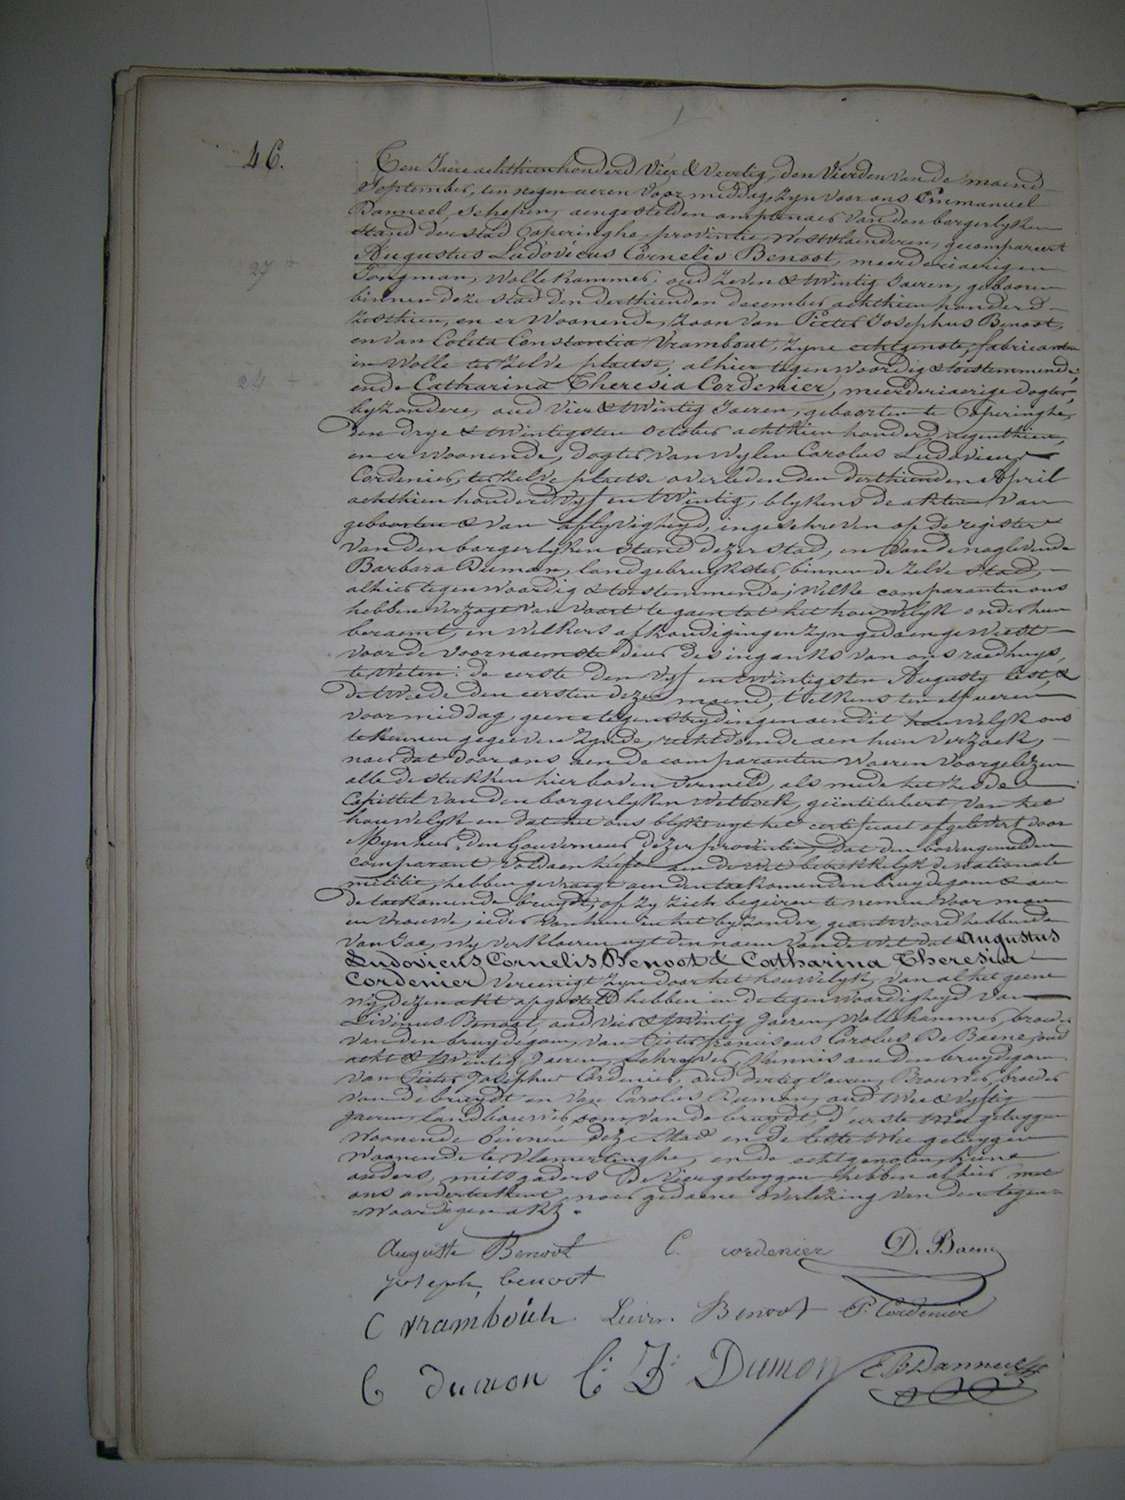 46.
Ten Jaere achthienhonderd vier & veertig, den vierden van de maend
September, ten negen ueren voor middag, zyn voor ons Emmanuel
Banneel, schepen, aengestelden amptenaer van den borgerlyken
stand der stad Poperinghe provintie Westvlaenderen, gecompareert
Augustus Ludovicus Cornelis Benoot, meerderjaerigen
27 +
Jongman, Wollekammer, oud zeven & twintig Jaeren, geboren
binnen deze stad den derthienden december achthien honderd
zesthien, en er Woonende, zoon van Pieter Josephus Benoot,
en van Coleta Constantia Vrambout, zyne echtgenote, fabricanten
in Wolle ter zelve plaetse, alhier tegenwoordig & toestemmende;
24 +
ende Catharina Theresia Cordenier, meerderjaerige dogter,
byzondere, oud vier & twintig Jaeren, geboorten te Poperinghe,
den drye & twintigsten october achthien honderd negenthien,
en er Woonende, dogter van Wylen Carolus Ludovicus
Cordenier, ter zelve plaetse overleden den derthienden April
achthien honderd vyf en twintig, blykens de akten van
geboorten & van aflyvigheyd, ingeschreven op de register
van den borgerlyken stand dezer stad, en van de naglevende
Barbara Dumon, landgebruykster, binnen de zelve stad,
alhier tegenwoordig & toestemmende; Welke comparanten ons
hebben verzogt van voort te gaen tot het houwelyk onder hun
beraemt, en Welkers afkondigingen zyn gedaen geweest
voor de voornaemste deur des ingangs van ons raedhuys,
te Weten: de eerste den vyf en twintigsten Augusty lest, &
de tweede den eersten dezer maend, telkens ten elf ueren
voormiddag, geene tegenstrydingen aen dit houwelyk ons
te kennen gegeven zynde, rechtdoende aen hun verzoek,
naer dat door ons aen de comparanten Waeren voorgelezen
alle de stukken hier boven vermeld, als mede het zesde
Capittel van den borgerlyken Wetboek, geïntituleert van het
houwelyk en dat het ons blykt uyt het certificaet afgelevert door
Mynheer den Gouverneur dezer provintie, dat den bovengemelden
comparant voldaen heeft aen de Wet betrekkelyk de nationale
militie, hebben gevraegt aen den toekomenden bruydegom & aen
de toekomende bruydt, of zy zich begeiren te nemen voor man
en vrouwe, ieder van hun in het byzonder, geantwoord hebbende
van Jae, wy verklaeren uyt den naem van de Wet dat Augustus
Ludovicus Cornelis Benoot & Catharina Theresia
Cordenier vereenigt zyn door het houwelyk, van al het geene
wy dezen akt opgesteld hebben in de tegenwoordigheyd van
Livinus Benoot, oud vier & twintig Jaeren, Wollekammer, broeder
van den bruydegom, van Pieter franciscus Carolus De Baene, oud
acht & twintig Jaeren, schryver, kennis aen den bruydegom
van Pieter Josephus Cordenier, oud dertig Jaeren, Brouwer, broeder
van de bruydt en van Carolus Dumon, oud twee & vyftig
Jaeren, landbouwer, oom van de bruydt, d'eerste twee getuygen
Woonende binnen deze stad en de leste twee getuygen
Woonende te Vlamertinghe, en de echtgenoten, hune
ouders, mitsgaders de vier getuygen hebben alhier met
ons onderteekent, naer gedaene overlezing van den tegen=
=woordigen akt.
Auguste Benoot C. cordenier De Baene
Joseph benoot
C vrambout Livin. Benoot P. Cordenier
B dumon C: L: Dumon E B Banneel